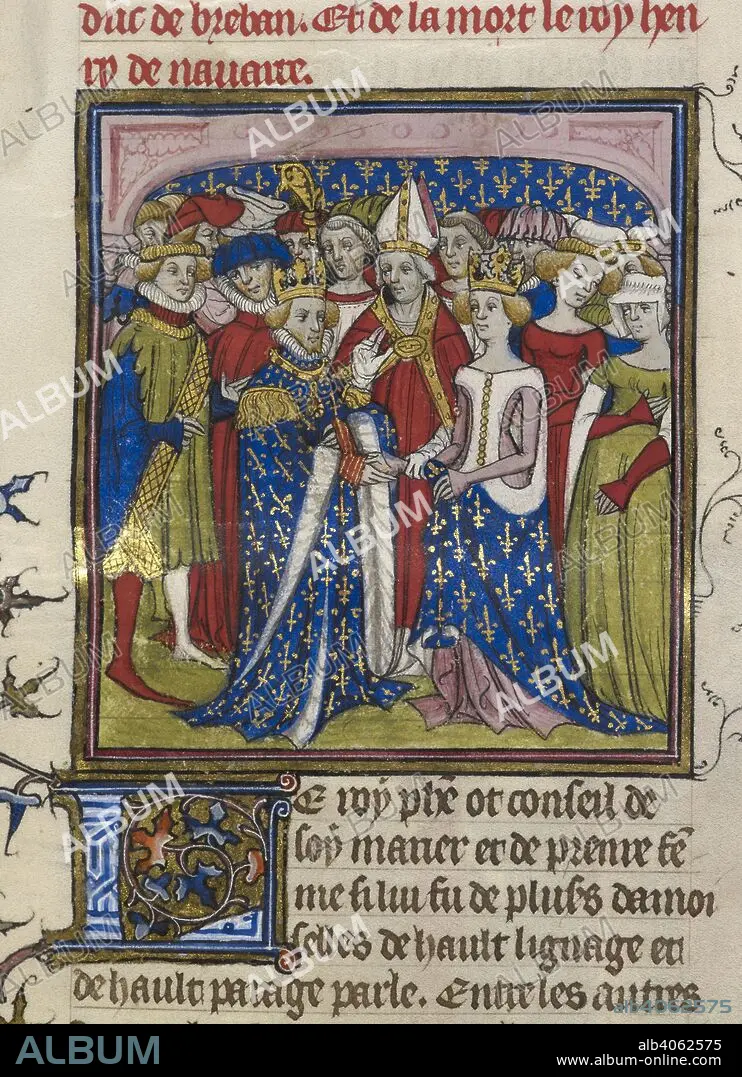 duc de breban. Et de la mort le roy hen
ry de nauarre.
Le roy phe ot conseil de
soy marier et de prenre fe
me si luy fu de plusss damoi
selles de hault lignage et
de hault parage parle. Entre les autres
ALBUM
ab4062575
ALBUM
alb4062575
www.album-online.com